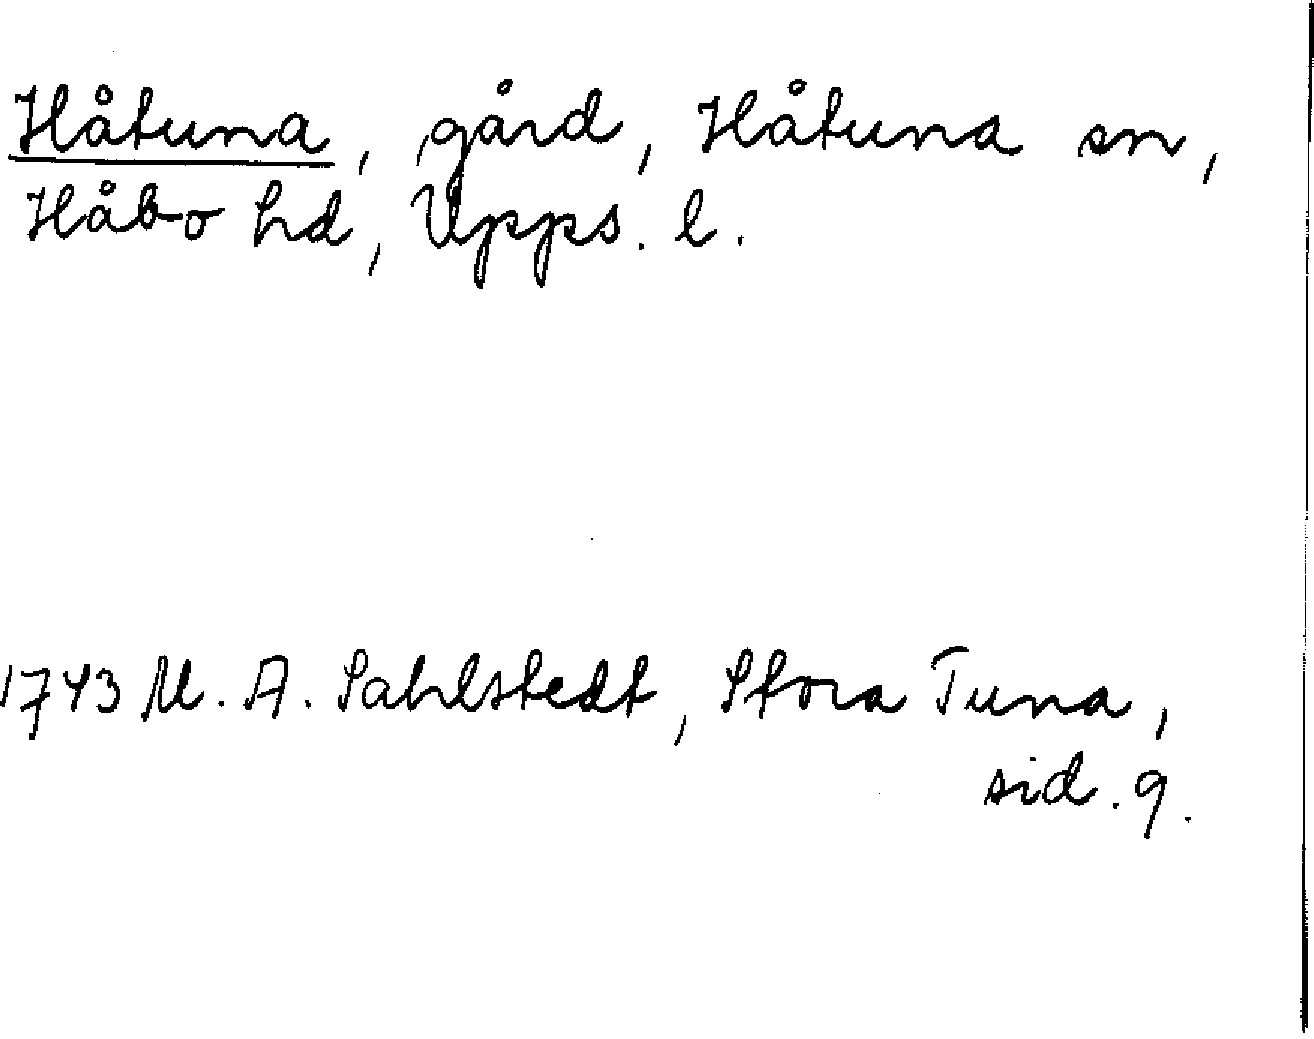 Håtuna, gård, Håtuna sn,
Håbo hd, Upps. l.
1743 M. A. Sahlstedt, Stora Tuna,
sid. 9.